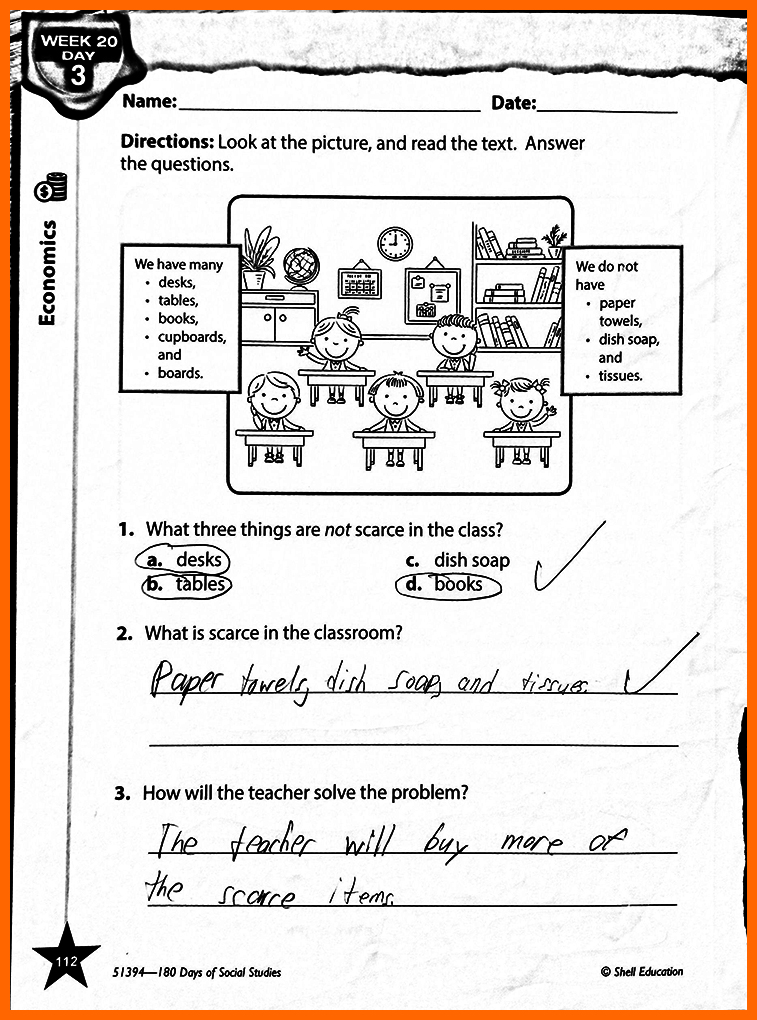 WEEK 20
DAY
3
Name: Date:
Directions: Look at the picture, and read the text. Answer
the questions.
Economics
We have many
• desks,
• tables,
• books,
• cupboards,
and
• boards.
We do not
have
• paper
towels,
• dish soap,
and
• tissues.
1. What three things are not scarce in the class?
a. desks
b. tables
c. dish soap
d. books
2. What is scarce in the classroom?
Paper towels, dish soap, and tissues.
3. How will the teacher solve the problem?
The teacher will buy more of
the scarce items.
112
51394—180 Days of Social Studies
© Shell Education